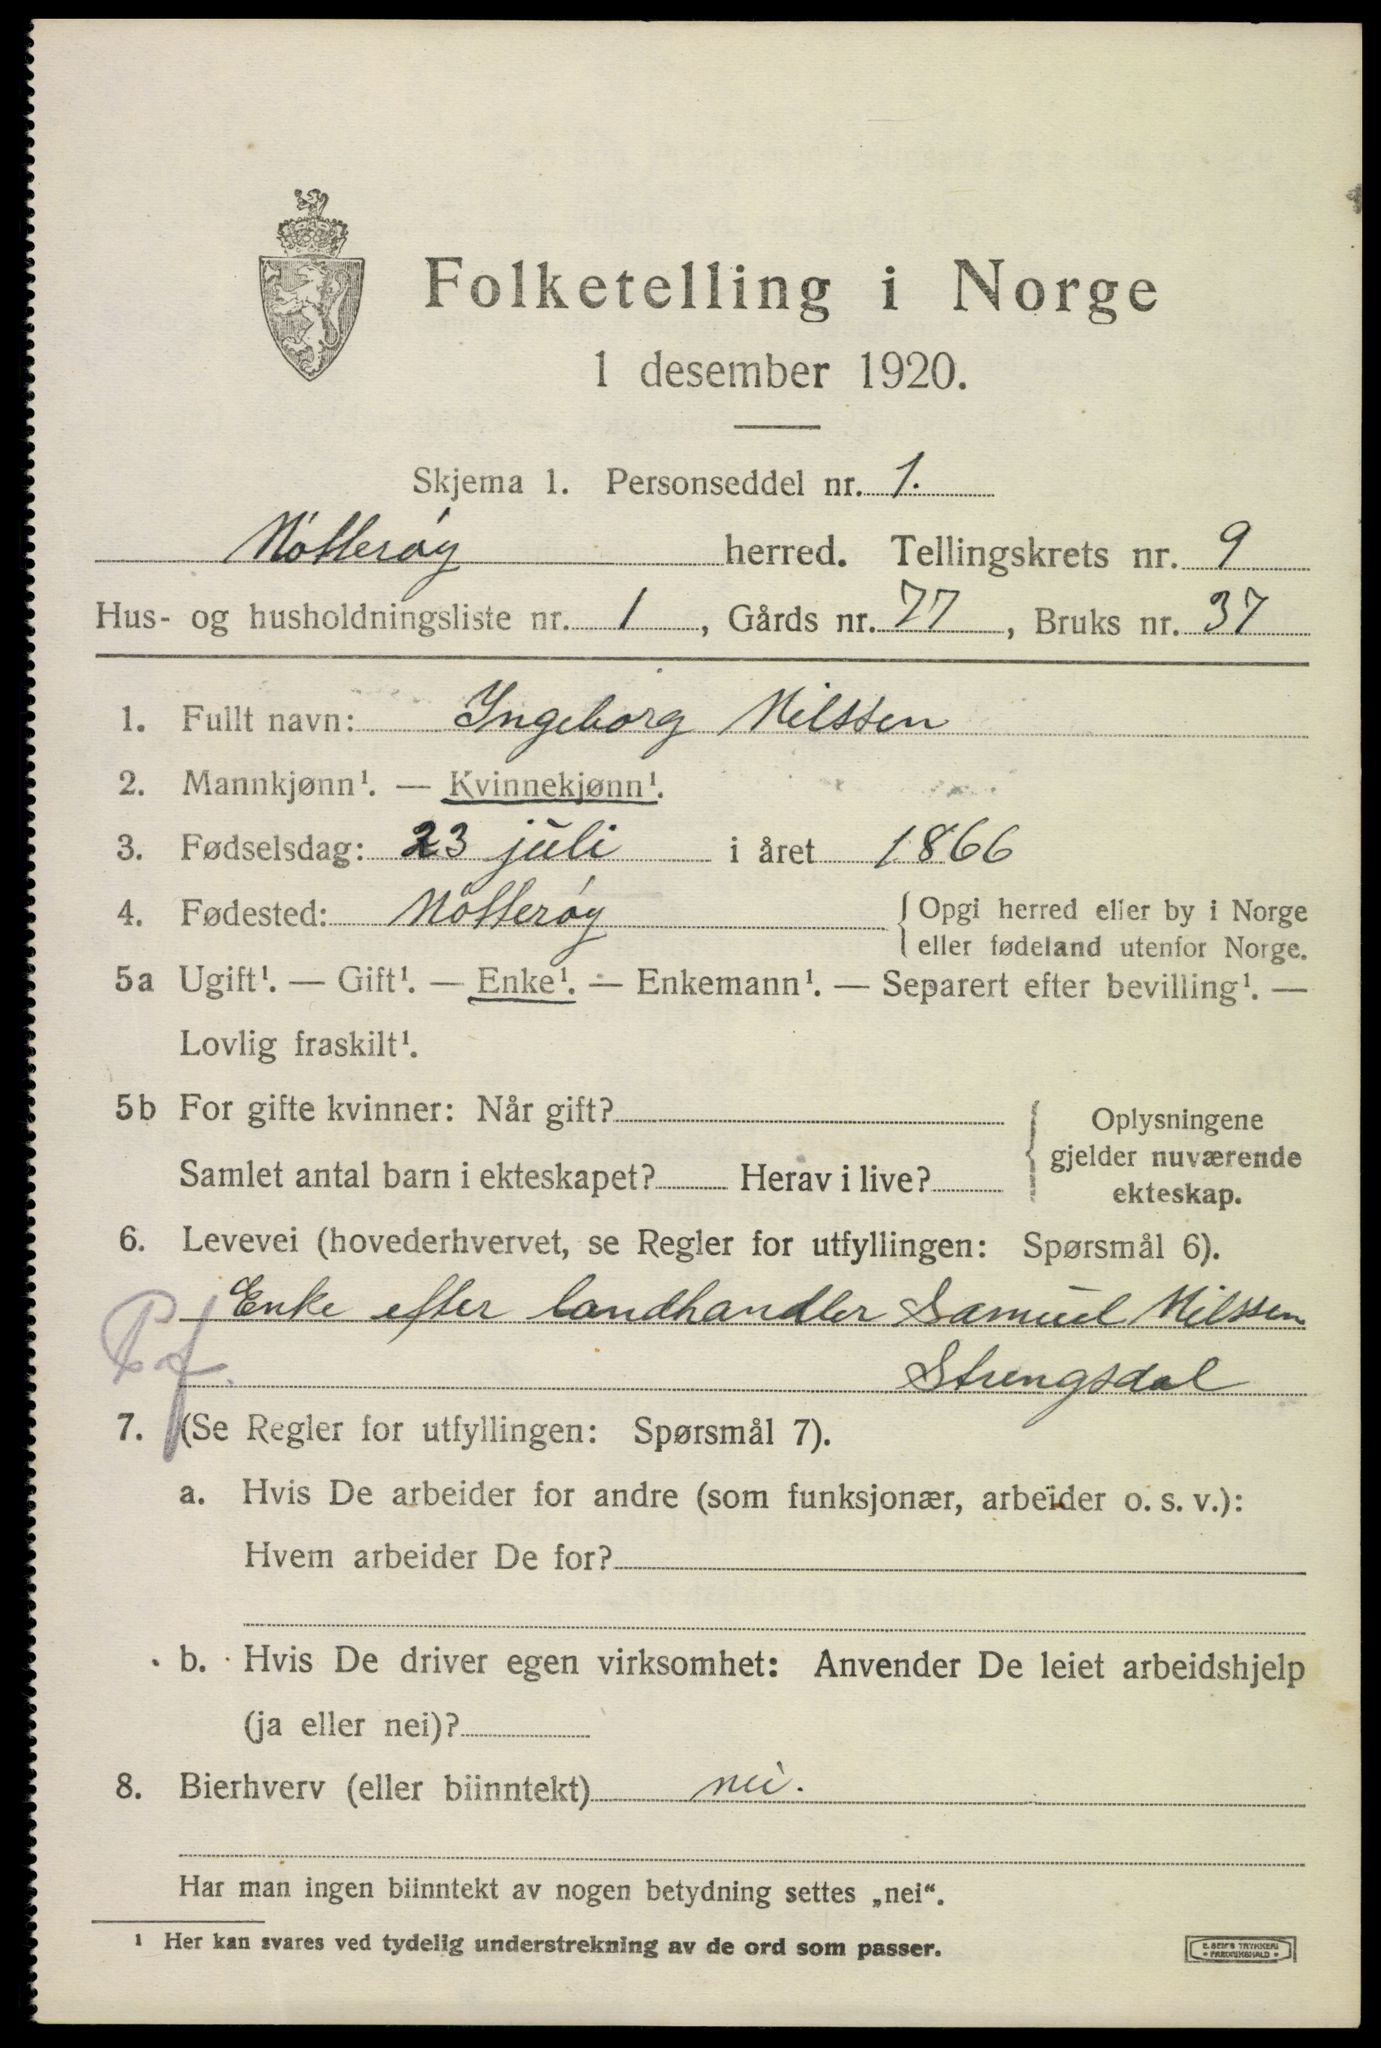 Folketelling i Norge
1 desember 1920.
Skjema 1. Personseddel nr. 1.
Nötterøy herred. Tellingskrets nr. 9
Hus- og husholdningsliste nr. 1, Gårds nr. 77, Bruks nr. 37
1. Fullt navn: Ingeborg Nilssen
2. Mannkjønn¹. — Kvinnekjønn¹.
3. Fødselsdag: 23 juli i året 1866
4. Fødested: Nötterøy {Opgi herred eller by i Norge
eller fødeland utenfor Norge.
5a Ugift¹. — Gift¹. — Enke¹. — Enkemann¹. — Separert efter bevilling¹. —
Lovlig fraskilt¹.
5b For gifte kvinner: Når gift?
Samlet antal barn i ekteskapet? Herav i live?
{Oplysningene
gjelder nuværende
ekteskap.
6. Levevei (hovederhvervet, se Regler for utfyllingen: Spørsmål 6).
Enke efter landhandler Samuel Nilssen
Strengsdal
7. (Se Regler for utfyllingen: Spørsmål 7).
a. Hvis De arbeider for andre (som funksjonær, arbeider o. s. v.):
Hvem arbeider De for?
b. Hvis De driver egen virksomhet: Anvender De leiet arbeidshjelp
(ja eller nei)?
8. Bierhverv (eller biinntekt) nei.
Har man ingen biinntekt av nogen betydning settes „nei“.
¹ Her kan svares ved tydelig understrekning av de ord som passer.